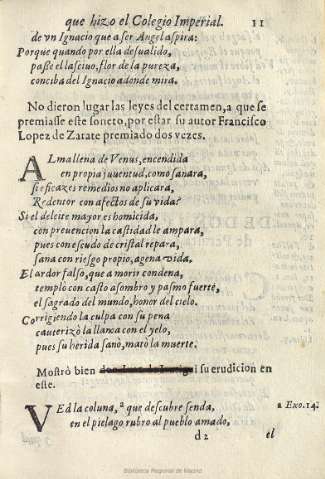 que hizo el Colegio Imperial. 11
de vn Ignacio que a ser Angel aspira:
Porque quando por ella desualido,
passe el lasciuo, flor de la pureza,
conciba del Ignacio adonde mira.
No dieron lugar las leyes del certamen, a que se
premiasse este soneto, por estar su autor Francisco
Lopez de Zarate premiado dos vezes.
ALma llena de Venus, encendida
en propia juuentud, como sanara,
si eficazes remedios no aplicara,
Redentor con afectos de su vida?
Si el deleite mayor es homicida,
con preuencion la castidad le ampara,
pues con escudo de cristal repara,
sana con riesgo propio, agena vida.
El ardor falso, que a morir condena,
templò con casto asombro y pasmo fuerte,
el sagrado del mundo, honor del cielo.
Corrigiendo la culpa con su pena
cauterizò la llanca con el yelo,
pues su herida sanò, matò la muerte.
Mostrò bien i su erudicion en
este.
VEd la coluna, a que descubre senda, a Exo. 14.
en el pielago rubro al pueblo amado,
d 2 el
Biblioteca Regional de Madrid